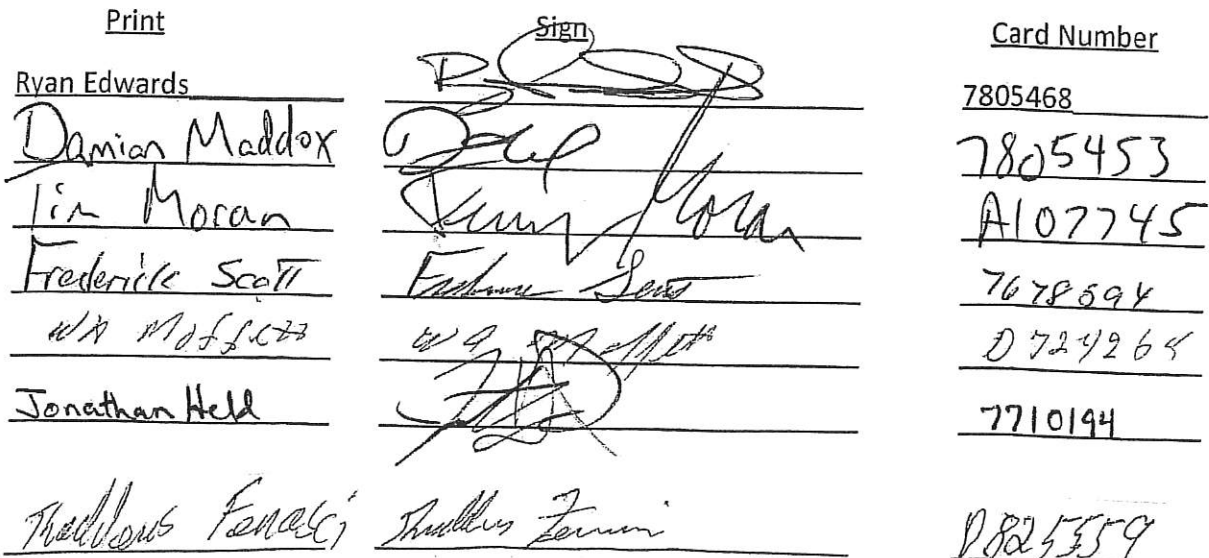 Print Sign Card Number
Ryan Edwards 7805468
Damian Maddox 7805453
Tim Moran Moran A107745
Frederick Scott 7678594
WA Moffett WA Moffett
Jonathan Held 7710194
Thaddeus Thaddeus D825559